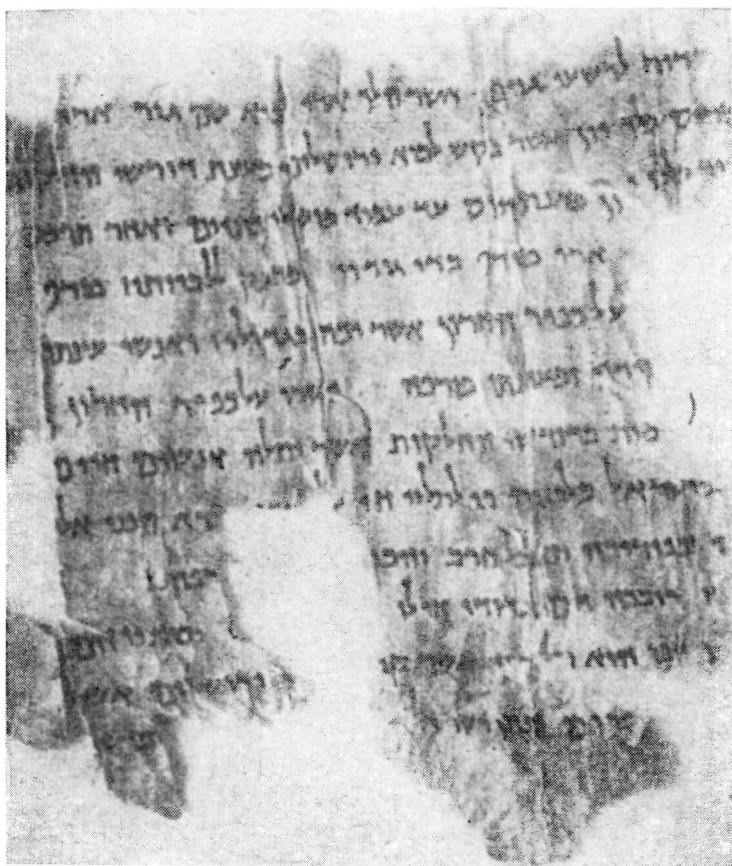 מדור לרשעי גוים אשר הלך ארי לבוא שם גור ארי
מלך יון אשר בקש לבוא ירושלים בעצת דורשי החלקות
יון מאנתיכוס עד עמוד מושלי כתיים ואחר תרמס
ארי טורף בדי גוריו ומחנק ללביותיו טרף
על כפיר החרון אשר יכה בגדוליו ואנשי עצתו
ומעונתו טרפה פשרו על כפיר החרון
מות בדורשי החלקות אשר יתלה אנשים חיים
בישראל מלפנים כי לתלוי חי הנני אלי
וכפיריכה תאכל חרב והכר רפה
רובכה הם גדודי חילו וכפיריו הם
הוא ההון אשר קב ני ירושלים אשר